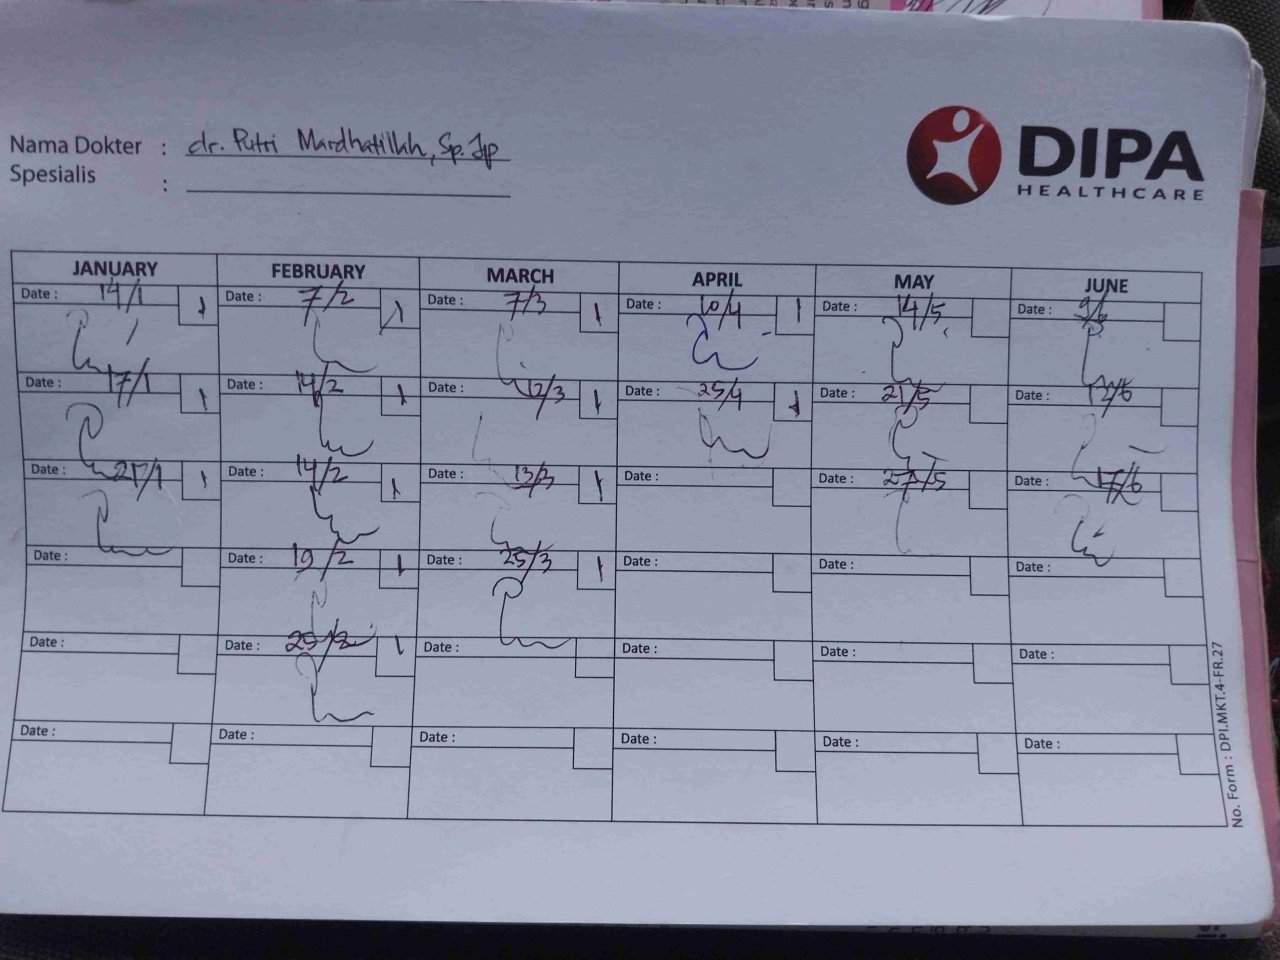 Nama Dokter : dr. Putri Mardhatillah, Sp. Jp
Spesialis :
DIPA
HEALTHCARE
JANUARY FEBRUARY MARCH APRIL MAY JUNE
Date : 14/1 1 Date : 7/2 1 Date : 7/3 1 Date : 10/4 1 Date : 14/5 Date : 9/6
Date : 17/1 1 Date : 14/2 1 Date : 12/3 1 Date : 25/4 1 Date : 21/5 Date : 12/6
Date : 27/1 1 Date : 14/2 1 Date : 13/3 1 Date : Date : 27/5 Date : 17/6
Date : Date : 19/2 1 Date : 25/3 1 Date : Date : Date :
Date : Date : 25/2 1 Date : Date : Date : Date :
Date : Date : Date : Date : Date : Date :
No. Form : DPI.MKT.4-FR.27